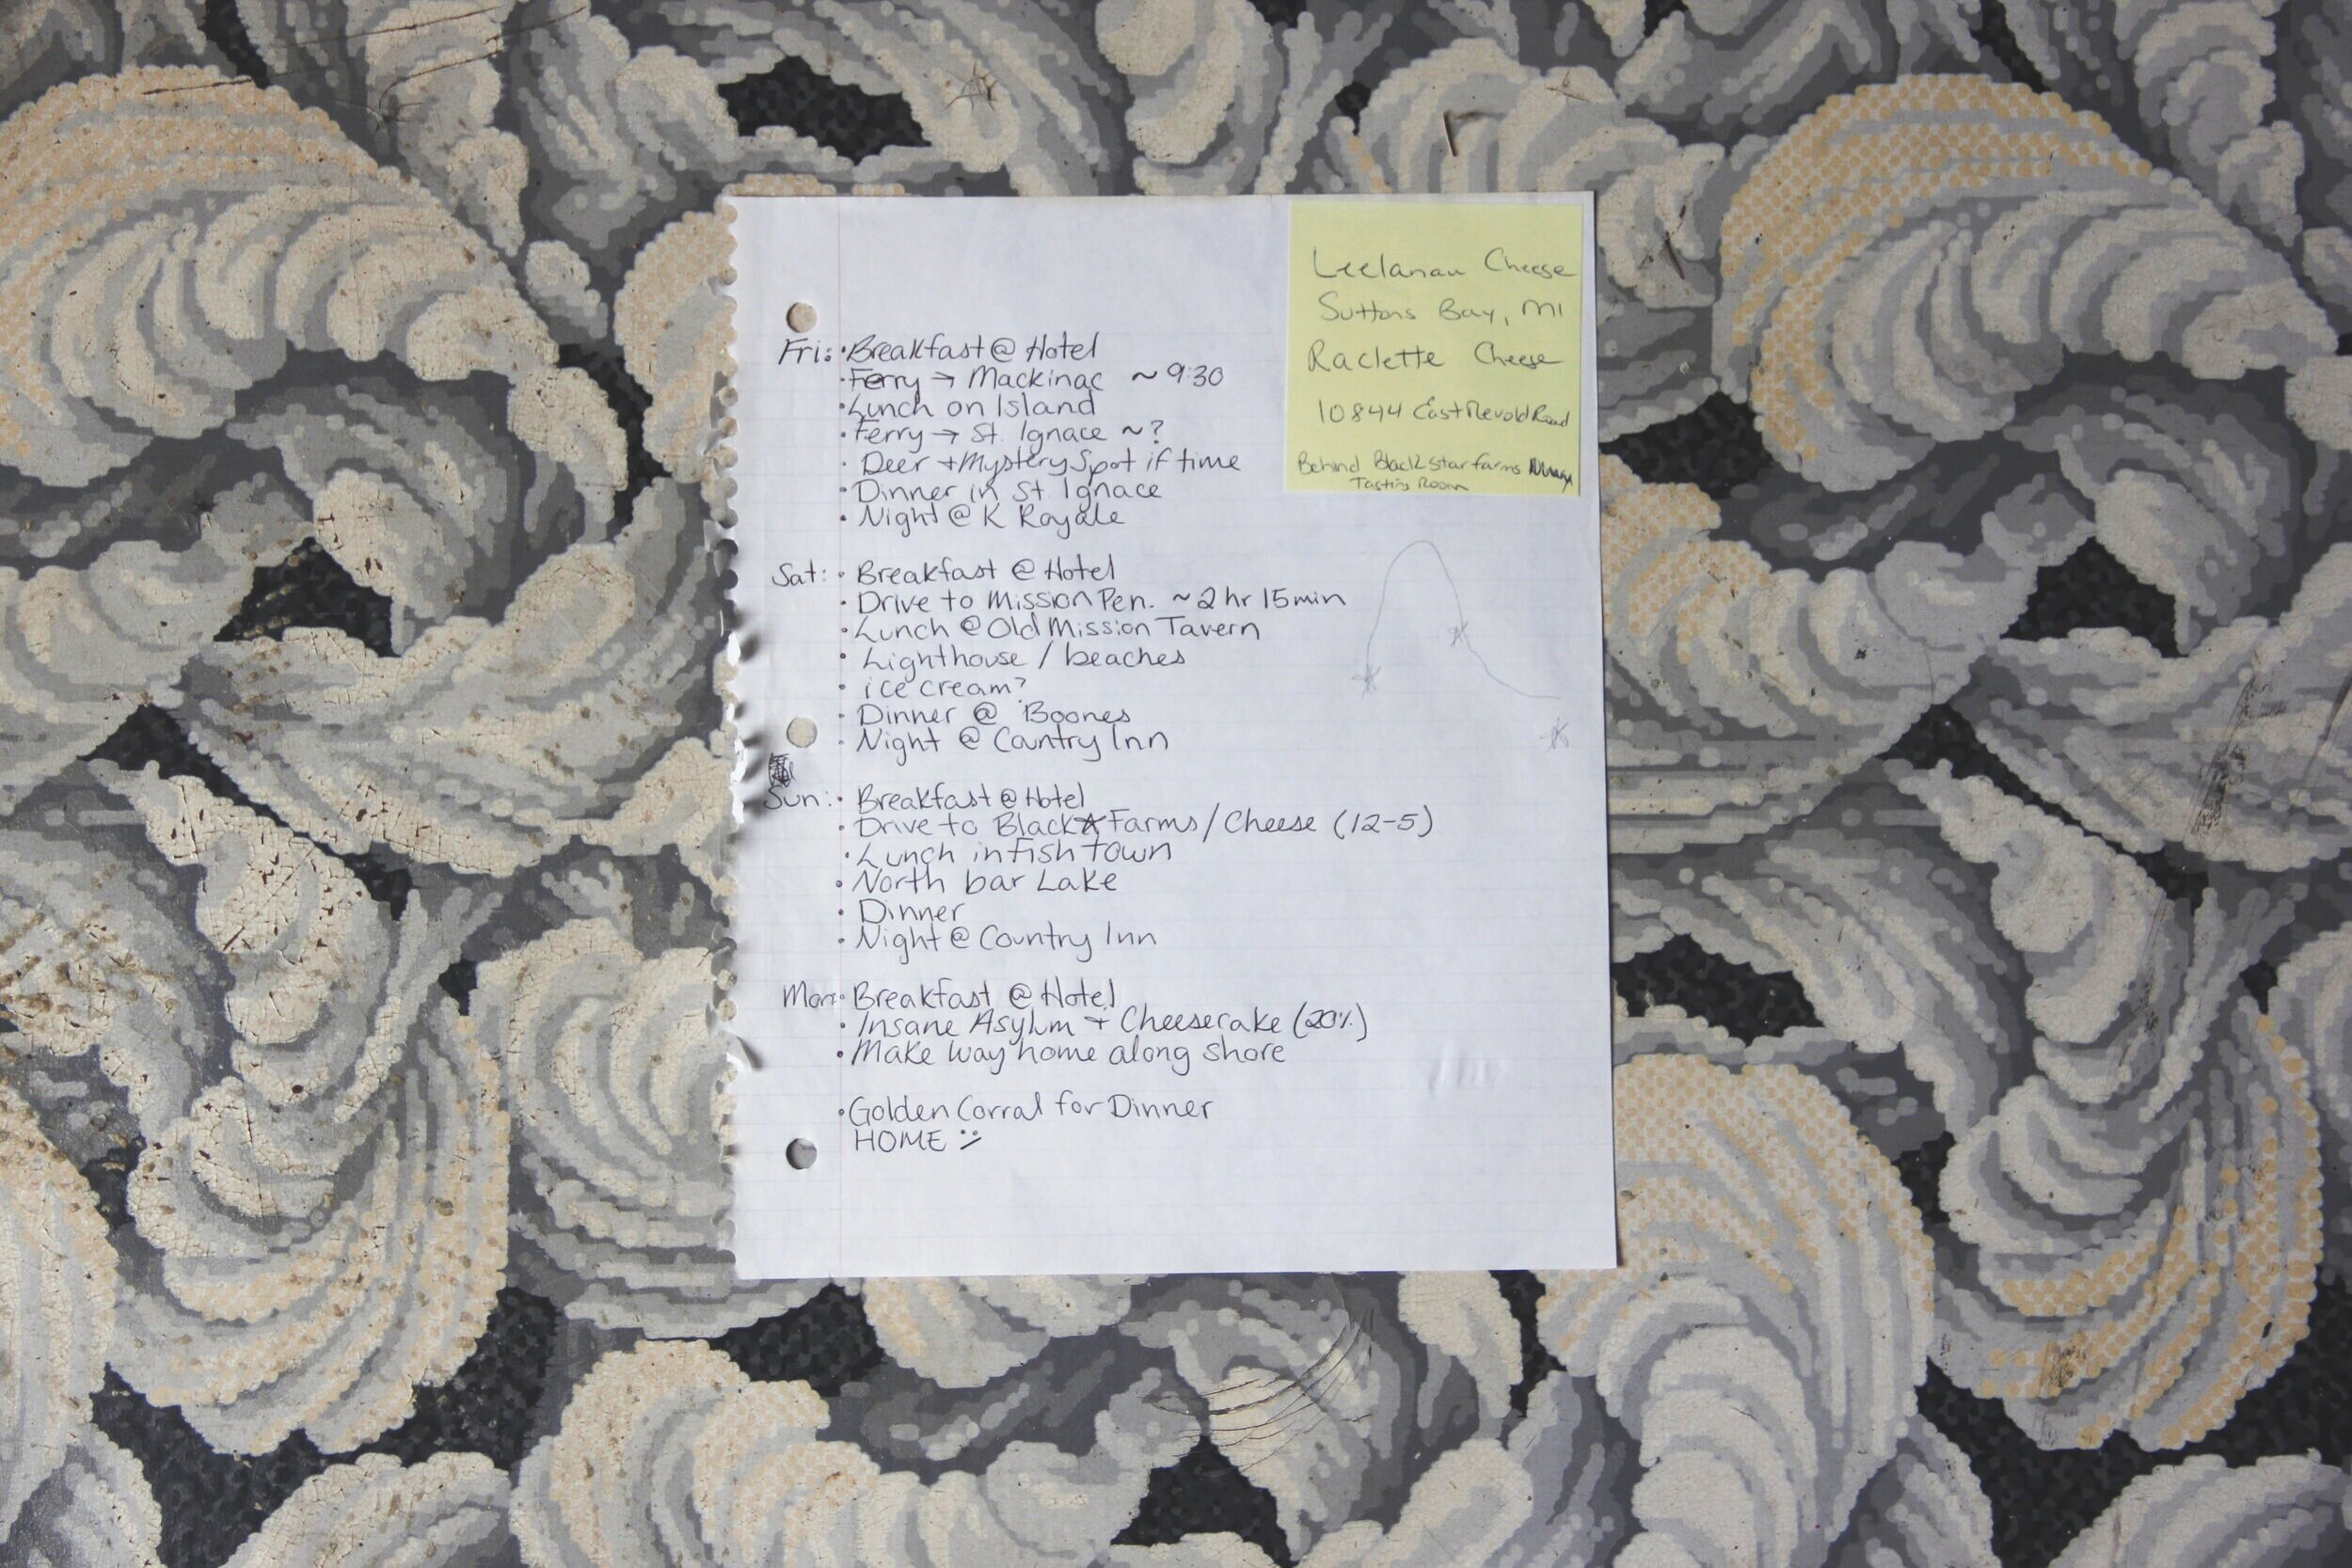 Leelanau Cheese
Suttons Bay, MI
Raclette Cheese
10844 East Revold Road
Behind Black Star farms
Tasting Room
Fri: • Breakfast @ Hotel
• Ferry → Mackinac ~ 9:30
• Lunch on Island
• Ferry → St. Ignace ~ ?
• Deer + Mystery Spot if time
• Dinner in St. Ignace
• Night @ K Royale
Sat: • Breakfast @ Hotel
• Drive to Mission Pen. ~ 2 hr 15 min
• Lunch @ Old Mission Tavern
• Lighthouse / beaches
• ice cream?
• Dinner @ Boones
• Night @ Country Inn
Sun: • Breakfast @ Hotel
• Drive to Black ☆ Farms / Cheese (12-5)
• Lunch in fish town
• North bar Lake
• Dinner
• Night @ Country Inn
Mon: • Breakfast @ Hotel
• Insane Asylum + Cheesecake (20%)
• Make way home along shore
• Golden Corral for Dinner
HOME :/